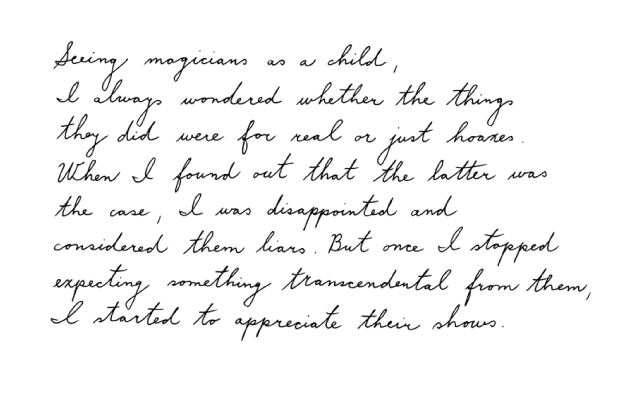 Seeing magicians as a child,
I always wondered whether the things
they did were for real or just hoaxes.
When I found out that the latter was
the case, I was disappointed and
considered them liars. But once I stopped
expecting something transcendental from them,
I started to appreciate their shows.